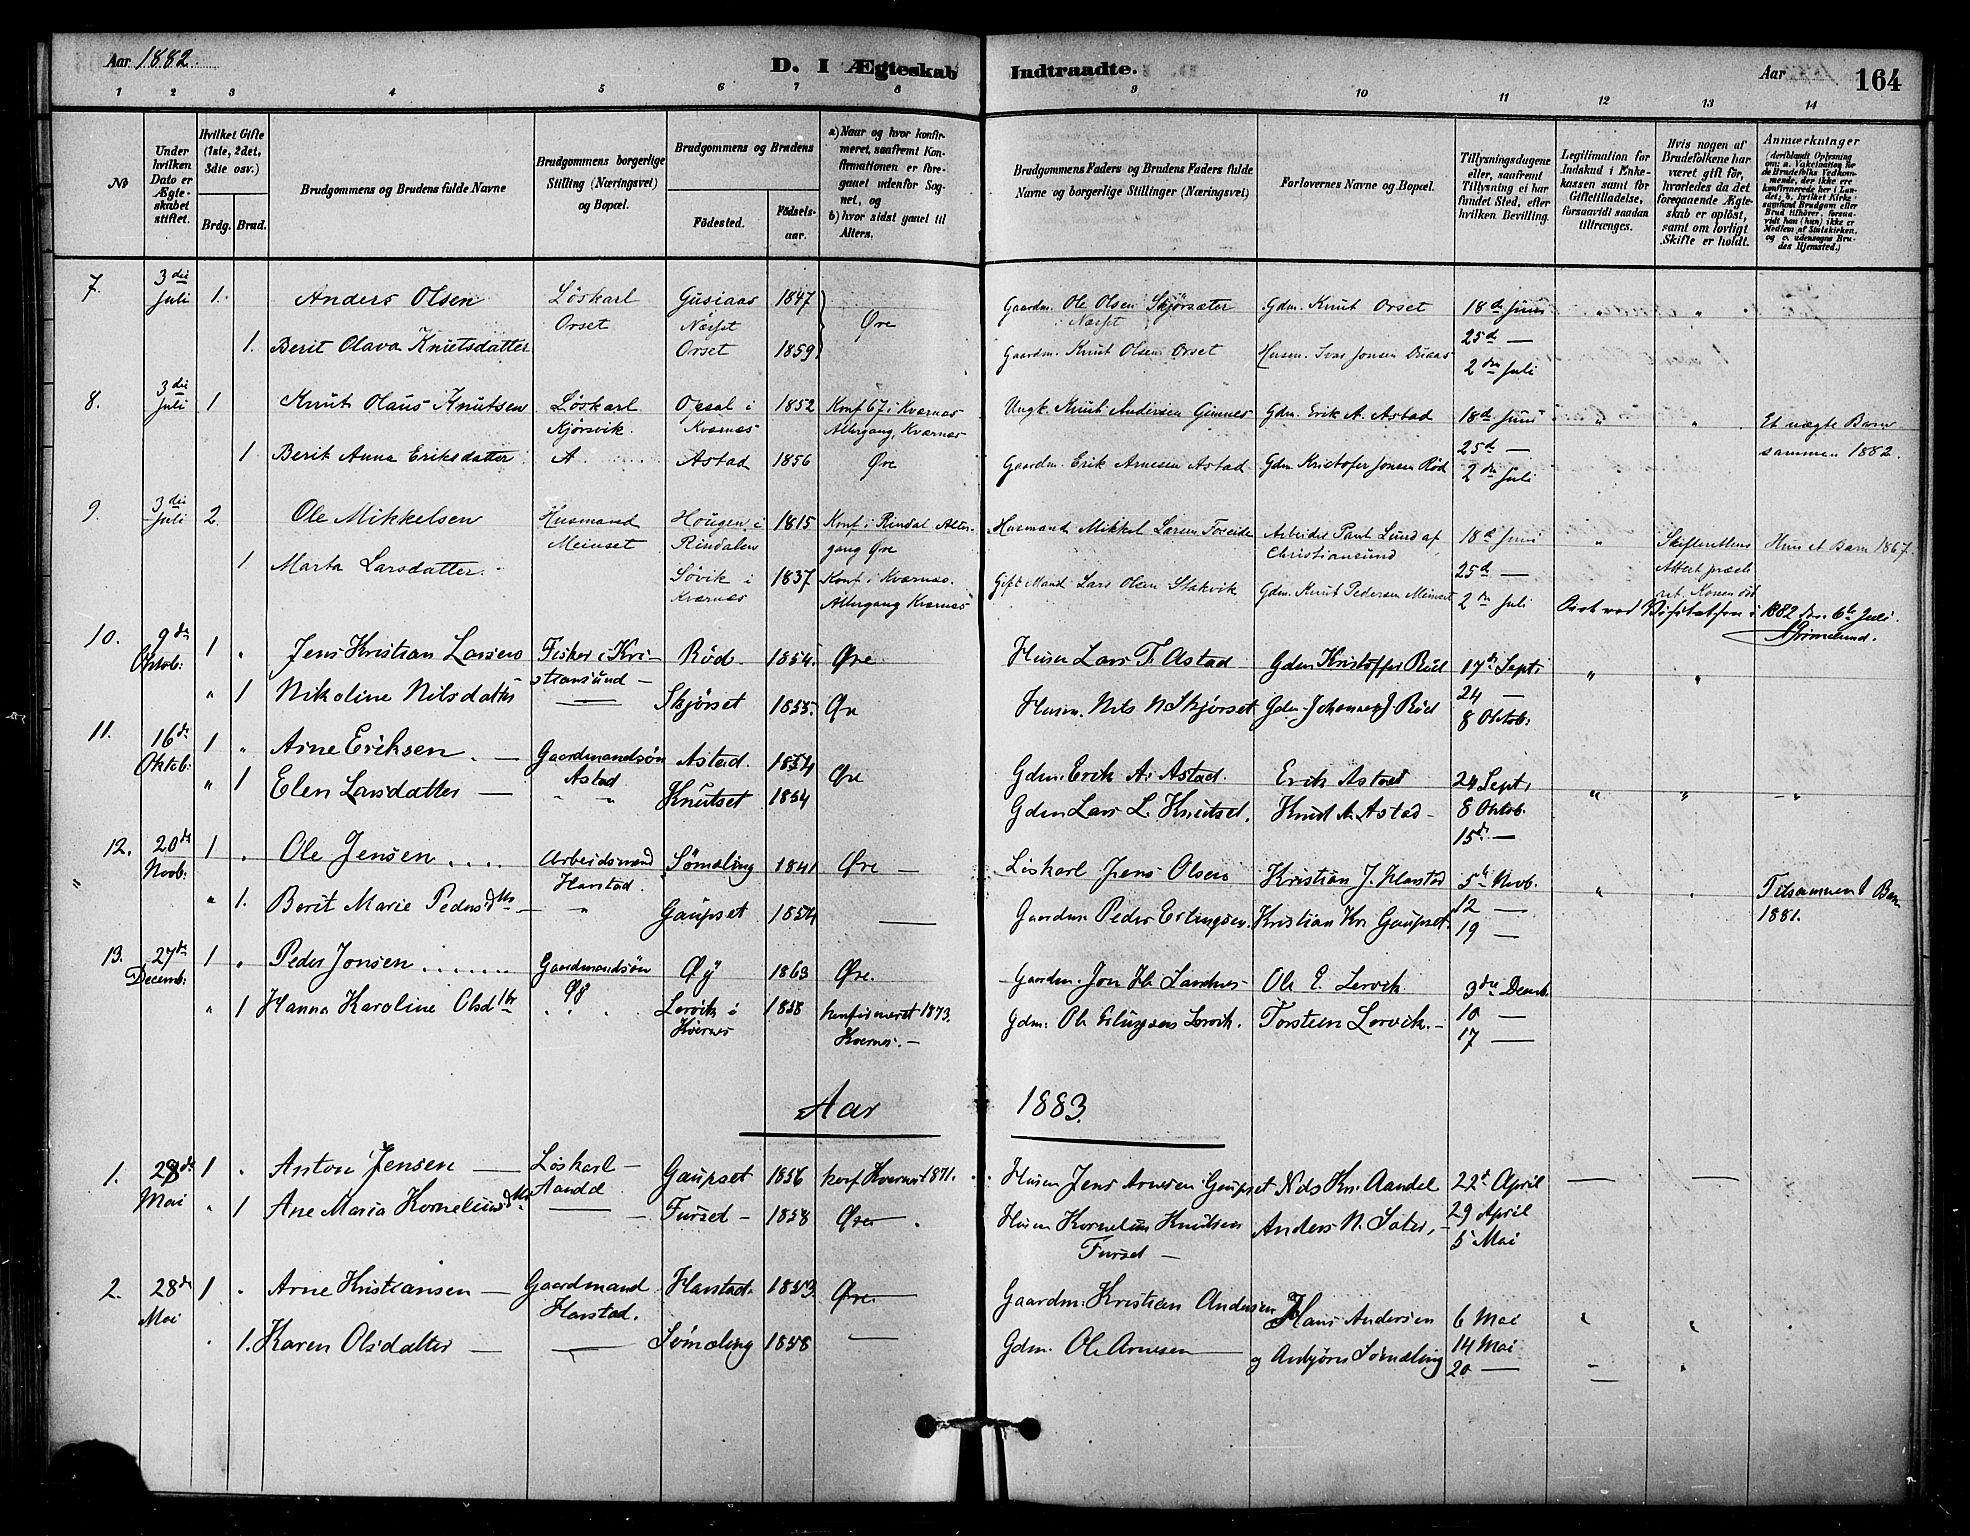 Aar 1882.
D. I Ægteskab Indtraadte.
Aar 164
1 2 3 4 5 6 7 8 9 10 11 12 13 14
No
Under hvilken Dato er Ægteskabet stiftet.
Hvilket Gifte (1ste, 2det, 3die osv.)
Brdg. Brud.
Brudgommens og Brudens fulde Navne
Brudgommens borgerlige Stilling (Næringsvei) og Bopæl.
Brudgommens og Brudens
Fødested.
Fødselsaar.
a) Naar og hvor konfirmeret, saafremt Konfirmationen er foregaaet udenfor Sognet, og
b) hvor sidst gaaet til Alters.
Brudgommens Faders og Brudens Faders fulde Navne og borgerlige Stillinger (Næringsvei)
Forlovernes Navne og Bopæl.
Tillysningsdagene eller, saafremt Tillysning ei har fundet Sted, efter hvilken Bevilling.
Legitimation for Indskud i Enkekassen samt for Giftetilladelse, forsaavidt saadan tiltrænges.
Hvis nogen af Brudefolkene har været gift før, hvorledes da det foregaaende Ægteskab er opløst, samt om lovligt Skifte er holdt.
Anmærkninger (deriblandt Oplysning om: a. Vakcination for de Brudefolks Vedkommende, der ikke ere konfirmerede her i Landet; b. hvilket Kirkesamfund Brudgom eller Brud tilhører, forsaavidt han (hun) ikke er Medlem af Statskirken, og c. udensogns Brudes Hjemsted.)
7. 3die Juli 1. Anders Olsen Løskarl Orset Gusiaas Næsset 1847 Øre Gaardm. Ole Olsen Skjørsæter i Næsset Gdm. Knut Orset 18de Juni "
1. Berit Olava Knutsdatter Orset 1859 Gaardm. Knut Olsen Orset Husm. Ivar Jonsen 25d — 2den Juli
8. 3die Juli 1 Knut Olaus Knutsen Løskarl Kjørsvik Orsal i Kværnæs 1852 Konf 67 i Kværnæs Altergang, Kværnæs Ungk. Knut Andersen Gimnes Gdm. Erik A. Astad 18de Juni " " Et uægte Barn sammen 1882.
1 Berit Anna Eriksdatter A Astad 1856 Øre Gaardm. Erik Arnesen Astad Gdm. Kristofer Jonsen Rød 25d — 2den Juli
9. 3die Juli 2. Ole Mikkelsen Husmand Meinset Hougen i Rindalen 1815 Konf i Rindal Altergang Øre Husmand Mikkel Larsen Arbeider Lund af Christiansund 18de Juni " Hun et Barn 1867.
1 Marta Larsdatter. Søvik i Kværnæs 1837 Konf. i Kværnæs. Altergang Kværnæs Gift Mand Lars Olsen Stakvik Gdm. Knut Pedersen Meinset 25d — 2den Juli
1882 den 6te Juli.
10. 9de Oktob: 1 " Jens Kristian Larsen Fisker i Kristiansund — Rød 1854. Øre Husm Lars T. Astad Gdm Kristoffer Rød 17de Sept. " "
" 1 Nikoline Nilsdatter — Skjørset 1855. Øre Husm. Nils N Skjørset Gdm Johannes J. Rød 24 — 8 Oktob.
11. 16de Oktob: 1 " Arne Eriksen. — Gaardmandsøn Astad Astad. 1854 Øre Gdm. Erik A. Astad. Erik Astad 24 Sept. " " "
" 1 Elen Larsdatter — " " Knutset 1854 Gdm Lars L. Knutset. Knut A. Astad — 8 Oktob. 15de —
12. 20de Novb: 1 " Ole Jensen .... Arbeidsmand Harstad. Sømæling 1841 Øre — Løskarl Jens Olsen Kristian J. Harstad 5te Novb. " " Tilsammen 1 Barn 1881.
" 1. Berit Marie Pedersdtr — " Gaupset 1854 — Gaardm Peder Erlingsen. Kristian Kr. Gaupset. 12 — 19 —
13. 27de Decemb: 1 " Peder Jonsen ....... Gaardmandsøn Øy Øÿ 1863 Øre. Gaardm. Jon H. Ole E. Lervik 3die Decmb.
" 1 Hanna Karoline Olsdtr " Lervik i Kvernes 1858 konfirmeret 1873. Kvernes. — Gdm. Ole Erlingsen Lervik. Torstein Lervik. — 10 — 17 —
Aar 1883.
1. 28de Mai 1 " Anton Jensen — Løskarl — Aandal Gaupset 1856 konf Kvernes 1871. Husm Jens Arnesen Gaupset Nils Kn. Aandal 22de April — —
" 1 Ane Maria Korneliusdtr — Furset — 1858 Øre — . Husm Kornelius Knutsen Furset — Anders N. Sater, — 29 April 5 Mai
2. 28de Mai 1 " Arne Kristiansen — Gaardmand Harstad. Harstad. 1853 Øre. Gaardm. Kristian Andersen Hans Andersen 6 Mai " "
" 1. Karen Olsdatter — — Sømæling 1858 — Gdm. Ole Arnesen — og Anbjørn Sømæling 14 Mai 20 — "